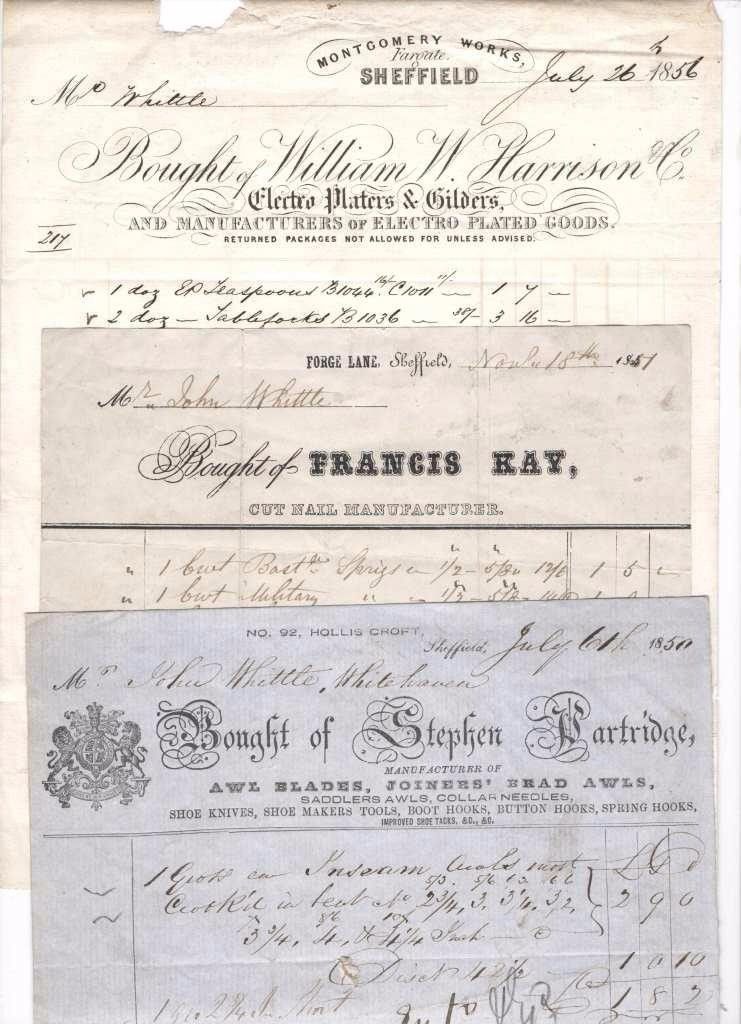 MONTGOMERY WORKS,
Fargate,
SHEFFIELD
July 26 1856
Mr Whittle
Bought of William W. Harrison & Co.
Electro Platers & Gilders,
AND MANUFACTURERS OF ELECTRO PLATED GOODS.
217
RETURNED PACKAGES NOT ALLOWED FOR UNLESS ADVISED.
1 doz EP Teaspoons B1044 16/- C1011 11/- — 1 7 —
2 doz — Tableforks B1036 — 38/- 3 16 —
FORGE LANE, Sheffield, Novbr 18th 1851
Mr John Whittle
Bought of FRANCIS KAY,
CUT NAIL MANUFACTURER.
" 1 Cwt Bastd Sprigs 1/2 - 5/8 12/6 1 5 "
" 1 Cwt Military " " 1/2 - 5/8
NO. 92, HOLLIS CROFT,
Sheffield, July 6th 1850
Mr John Whittle, Whitehaven
Bought of Stephen Partridge,
MANUFACTURER OF
AWL BLADES, JOINERS' BRAD AWLS,
SADDLERS AWLS, COLLAR NEEDLES,
SHOE KNIVES, SHOE MAKERS TOOLS, BOOT HOOKS, BUTTON HOOKS, SPRING HOOKS,
IMPROVED SHOE TACKS, &C., &C.
£ S D
1 Gross Inseam Awls most
5/3 5/6 6 6 6
Crook'd in beat No 2 3/4, 3, 3 1/4, 3 1/2, 2 9 0
8/6 10/
3 3/4, 4, & 4 1/4 Inch
Disct 42 1/2 1 0 10
1 8 2
1 Gro 2 1/4 In Short